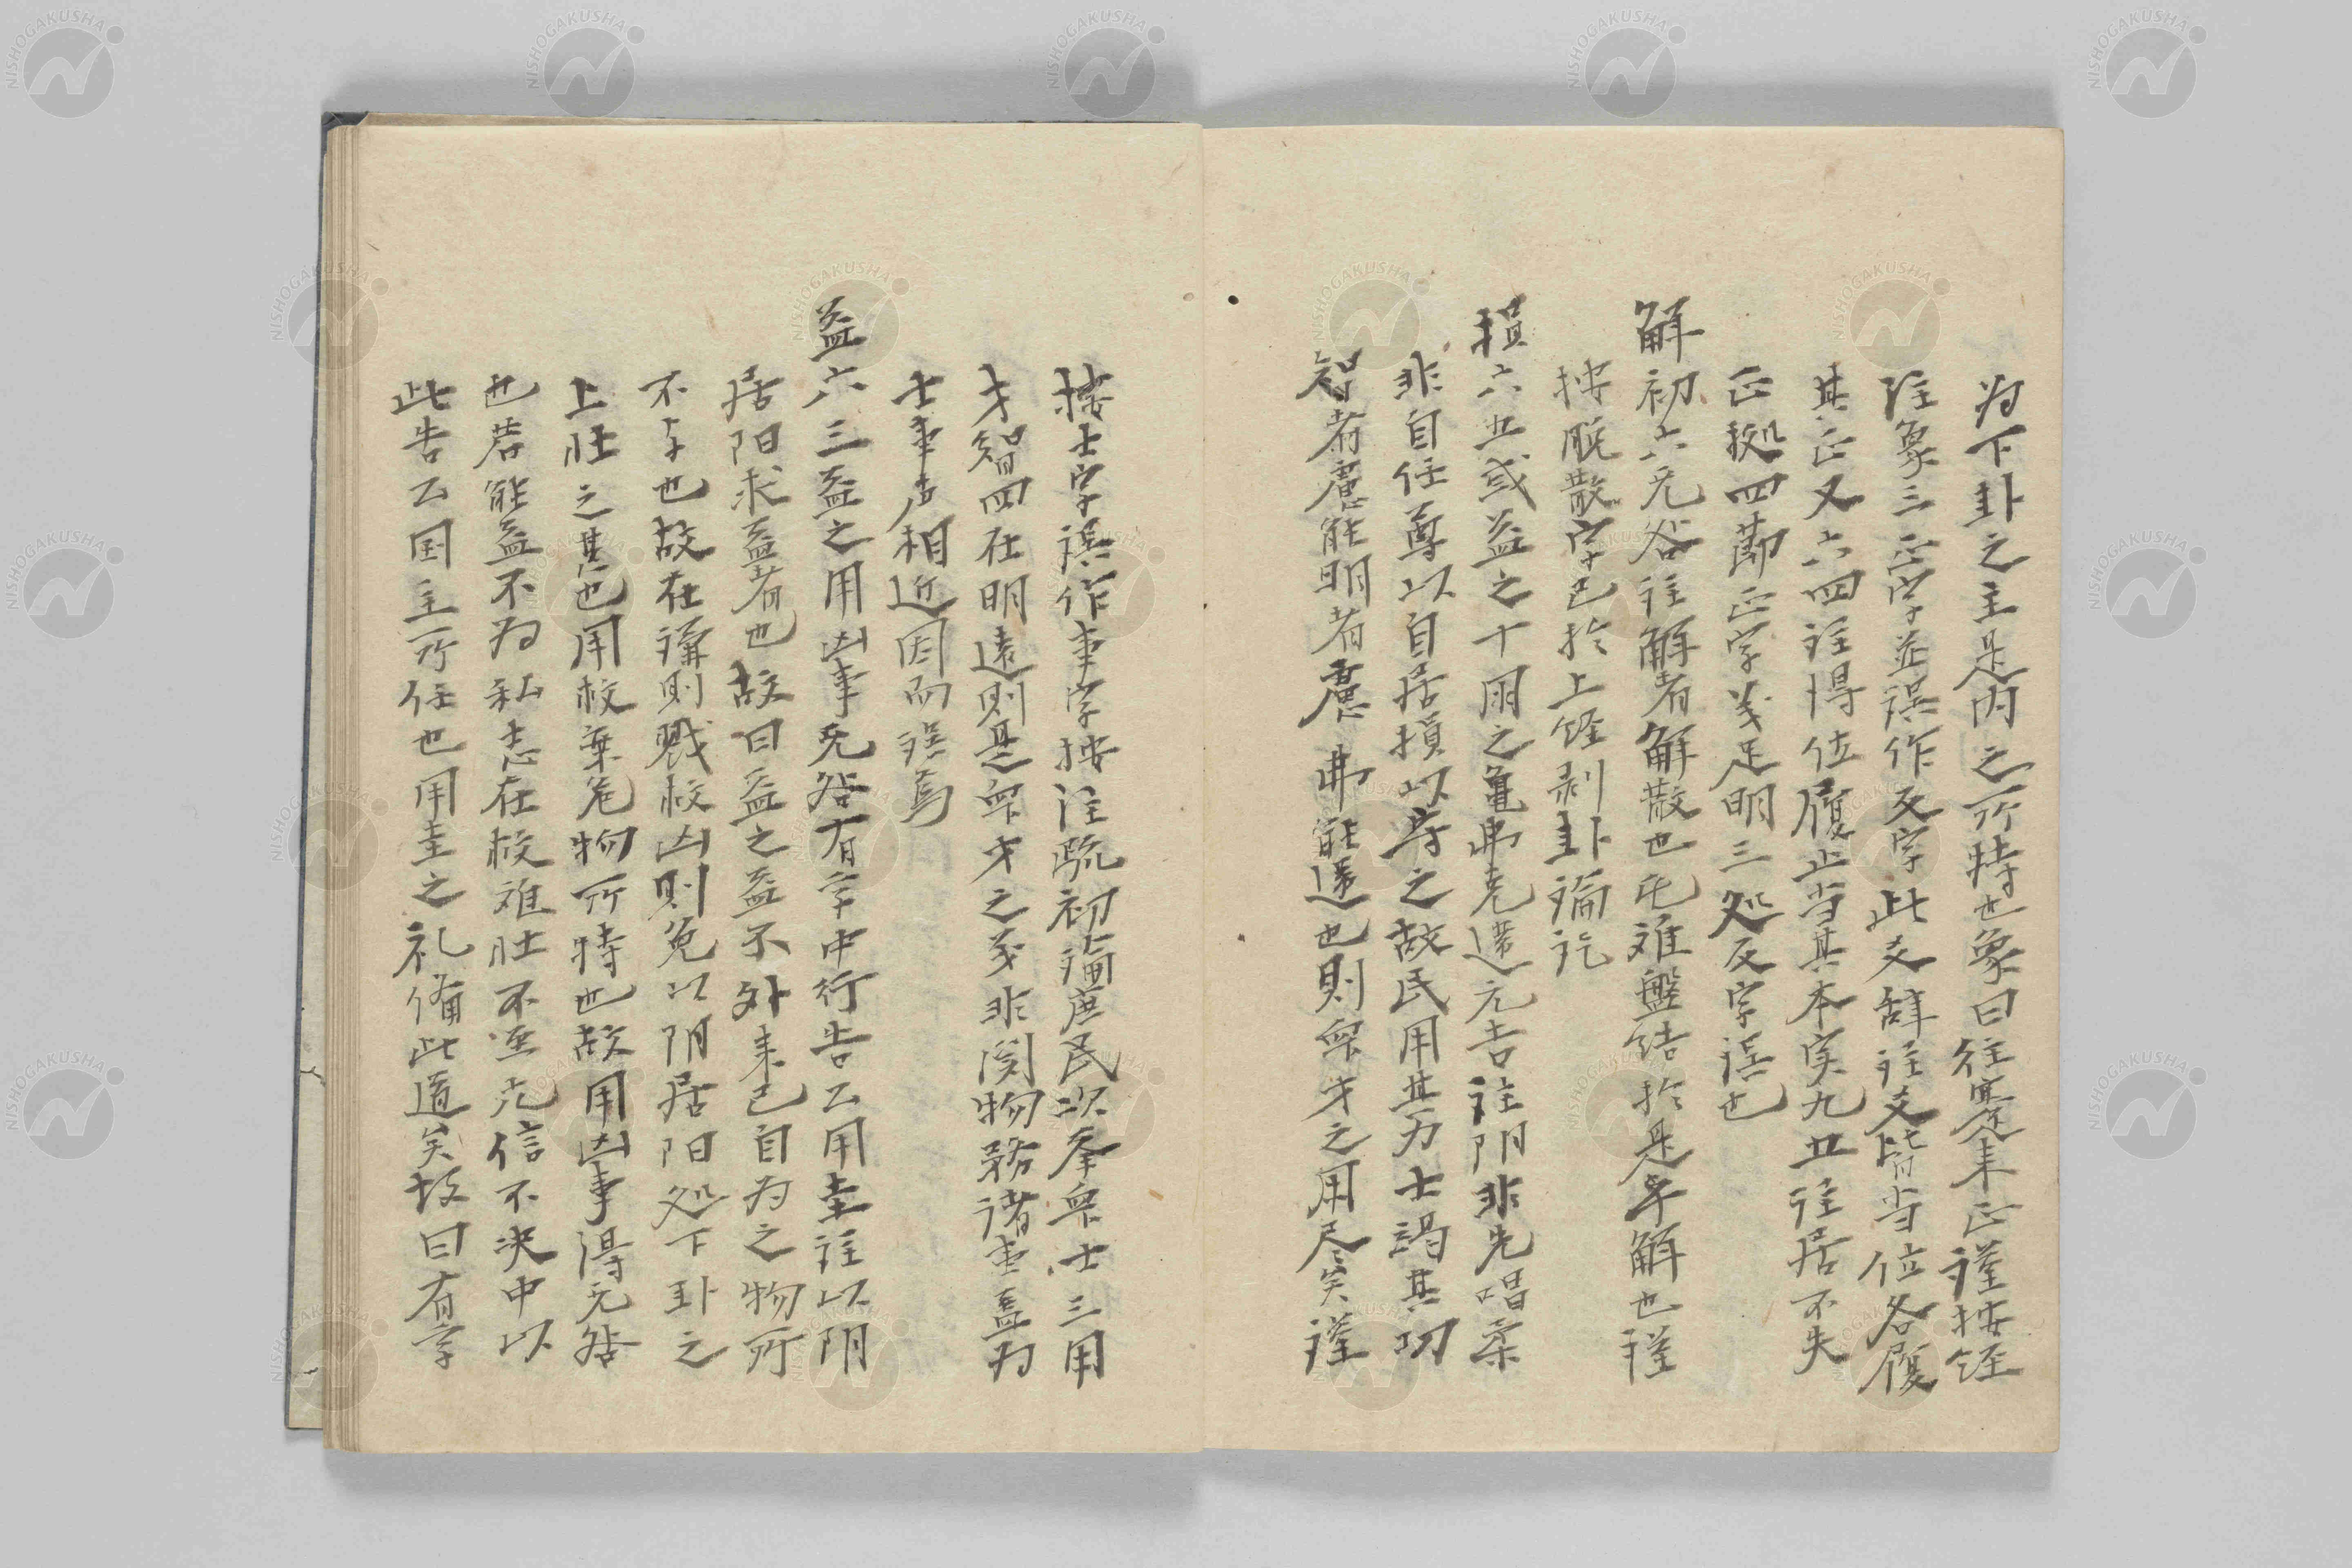 为下卦之主是内之所恃也象曰往蹇来正谨按经
注象三正字並误作反字此爻辞注爻皆当位各履
其正又六四注得位履正当其本实九五注居不失
正拠四莭正字义足明三処反字误也
解初六无咎注解者解散也屯难盤结於是乎解也谨
按脱散字已於上经剥卦論訖
損六五或益之十朋之亀弗克違元吉注阴非先唱柔
非自任尊以自居損以守之故民用其力士竭其功
智者慮能明者慮弗能違也則衆才之用尽矣谨
按士字误作事字按注疏初論庶民次奉衆士三用
才智四在明遠則是衆才之义非関物務诸事盖为
士事声相近因而误焉
益六三益之用凶事无咎有孚中行告公用圭注以阴
居阳求益者也故曰益之益不外来已自为之物所
不与也故在谦則戮救凶則免以阴居阳処下卦之
上壮之甚也用救衰危物所恃也故用凶事得无咎
也若能益不为私志在救难壮不至亢信不失中以
此告公国主所任也用圭之礼俻此道矣故曰有孚